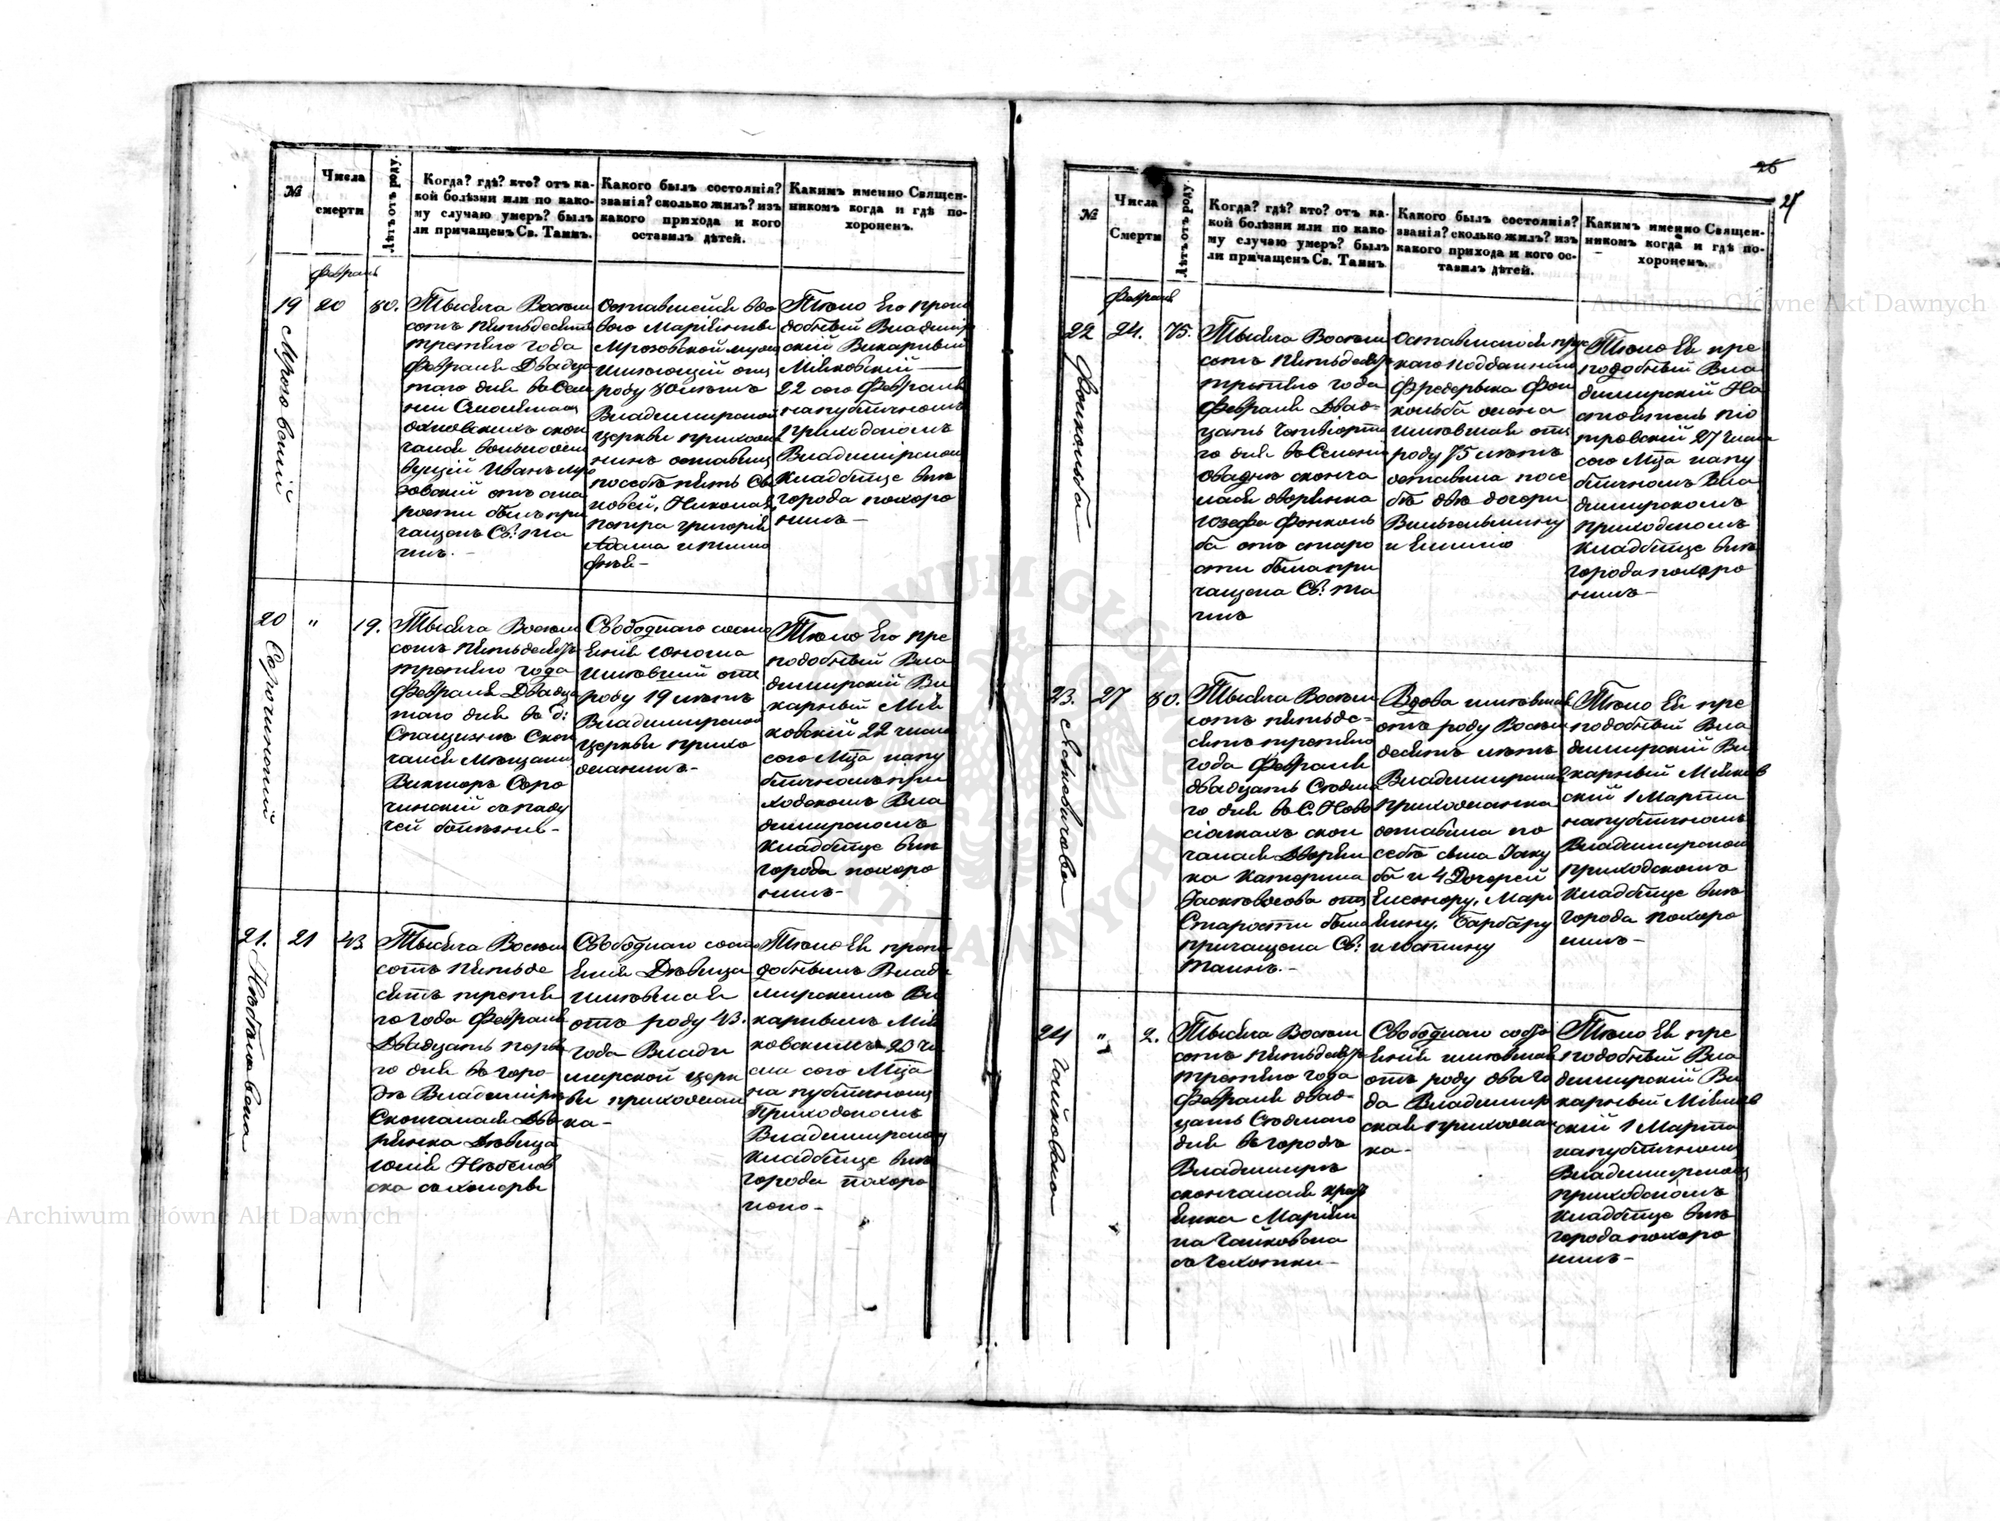 №
Числа
смерти
Лѣтъ отъ роду.
Когда? гдѣ? кто? отъ ка-
кой болѣзни или по како-
му случаю умеръ? былъ
ли причащенъ Св. Таинъ.
Какого былъ состоянія?
званія? сколько жилъ? изъ
какого прихода и кого
оставилъ дѣтей.
Какимъ именно Священ-
никомъ когда и гдѣ по-
хороненъ.
Февраль
19
20
80.
Мрозовскій
Тысяча Восем
сотъ пятьдесятъ
третяго года
Февраля Двадца
таго дня въ Селѣ
скон
чался
Иванъ Мро
зовскій отъ ста
рости былъ при
чащенъ Св: Та
инъ.-
Мрозовской
роду 80 лѣтъ
Владимирской
церкви прихожа
нинъ оставилъ
по себѣ пять Сы
новей, Николая,
Петра Григорія
Адама и Тимо
фѣя-
Тѣло Его препо
добный Владимир
скій Викарный
Мѣйковскій
22 сего Февраля
на публичномъ
приходскомъ
Владимірскомъ
кладбище внѣ
города похоро
нилъ-
20
"
19.
Сорочинскій
Тысяча Восем
сотъ пятьдесятъ
третяго года
Февраля Двадца
таго дня въ
Скон
чался Мещанин
Викторъ Соро
чинскій съ паду
чей болѣзни-
Свободнаго состо
янія юноша
имѣвшій отъ
роду 19 лѣтъ
Владимирской
церкви прихо
жанинъ-
Тѣло Его пре
подобный Вла
димирскій Ви
карный Мѣй
ковскій 22 числа
сего Мца на пу
бличномъ при
ходскомъ Вла
димирскомъ
кладбище внѣ
города похоро
нилъ-
21.
21
43
Тысяча Восем
сотъ пятьде
сятъ третя
го года Февраля
Двадцать перва
го дня въ горо-
дѣ Владимірѣ
Скончалася Дво
рянка Дѣвица
Юлія
ска съ холеры
Свободнаго состо
янія Дѣвица
имѣвшая
отъ роду 43.
года Влади
мирской церк
ви прихожан
ка-
Тѣло Ея препо-
добнымъ Влади
мирскимъ Ви
карнымъ Мѣй
ковскимъ 23 чи
сла сего Мца
на публичномъ
Приходскомъ
Владимирскомъ
кладбище внѣ
города похоро
нено-
26
27
№
Числа
Смерти
Лѣтъ отъ роду.
Когда? гдѣ? кто? отъ ка-
кой болѣзни или по како-
му случаю умеръ? былъ
ли причащенъ Св. Таинъ
Какого былъ состоянія?
званія? сколько жилъ? изъ
какого прихода и кого ос-
тавилъ дѣтей.
Какимъ именно Священ-
никомъ когда и гдѣ по-
хороненъ.
Февраль
22
24.
75.
Фонкольба
Тысяча Восем
сотъ Пятьдесятъ
третяго года
Февраля Двад-
цать Четверта
го дня въ Селени
сконча
лася дворянка
Іозефа Фонколь
ба отъ старо
сти была при
чащена Св: та
инъ
каго подданнаго
Фредерыка Фон
кольба жена
имѣвшая отъ
роду 75 лѣтъ
оставила по се
бѣ двѣ дочери
Вильгельмину
и Емилію
Тѣло Ея пре
подобный Вла
димирскій На
стоятель Пе
тровскій 27 числа
сего Мца на пу
бличномъ Вла
димирскомъ
приходскомъ
кладбище внѣ
города похоро
нилъ-
23.
27
80.
Тысяча Восем
сотъ пятьде-
сятъ третяго
года Февраля
двадцать Седма
го дня въ С. Ново
скон
чалася Дворян
ка Катерина
отъ
Старости была
причащена Св:
Таинъ.-
Вдова имѣвшая
отъ роду Восем
десятъ лѣтъ
Владимирская
прихожанка
оставила по
себѣ сына Яку
ба и 4 Дочерей
Елеонору, Марі
янну, Барбару
и Юстину
Тѣло Ея пре
подобный Вла
димирскій Ви
карный Мѣйков
скій 1 Марта
на публичномъ
Владимирскомъ
приходскомъ
кладбище внѣ
города похоро
нилъ-
24
"
2.
Чайковна
Тысяча Восем
сотъ пятьдесятъ
третяго года
Февраля двад-
цать Седмаго
дня въ городѣ
Владимирѣ
скончалася
Марія
на Чайковна
съ Чахотки-
Свободнаго состо
янія имѣвшая
отъ роду два го
да Владимир
ская прихожан
ка-
Тѣло Ея пре
подобный Вла
димирскій Ви
карный Мѣйков
скій 1 Марта
на публичномъ
Владимирскомъ
приходскомъ
кладбище внѣ
города похоро
нилъ-
Archiwum Główne Akt Dawnych
Archiwum Główne Akt Dawnych
ARCHIWUM GŁÓWNE AKT DAWNYCH